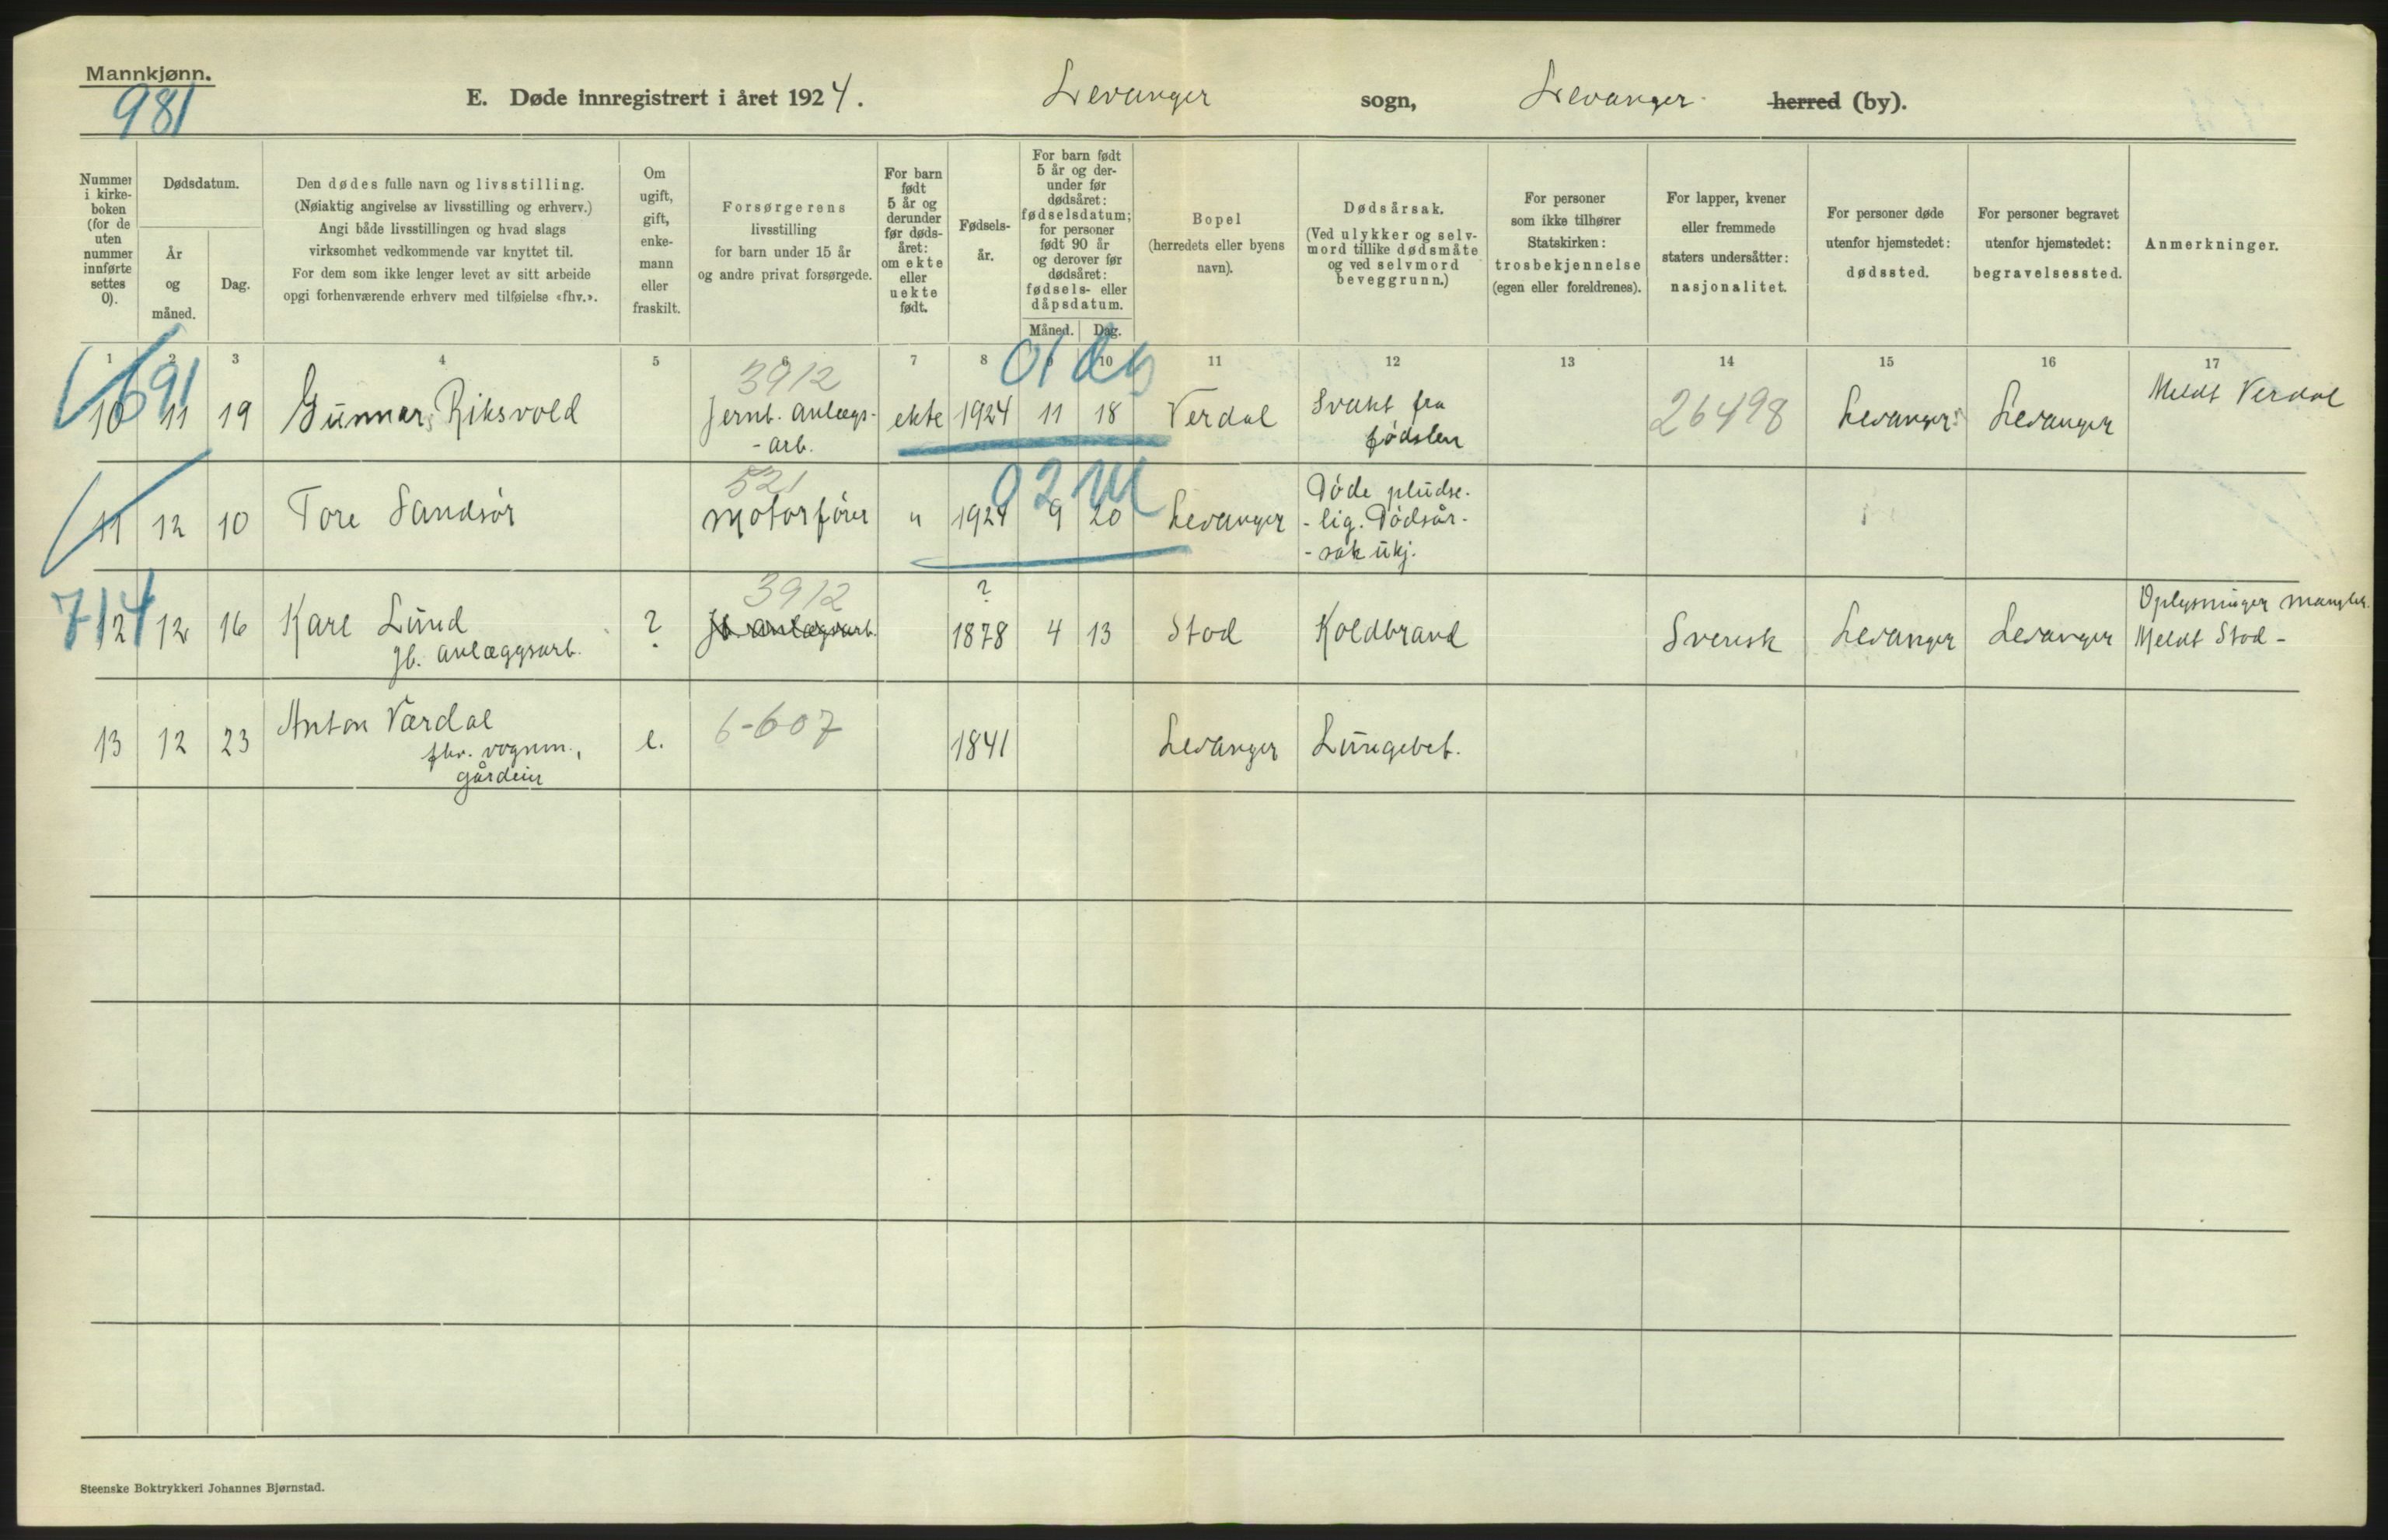 Mannkjønn.
981
E. Døde innregistrert i året 1924. Levanger sogn, Levanger herred (by).
Nummer i kirke- boken (for de uten nummer innførte settes 0).
Dødsdatum.
År og måned.
Dag.
Den dødes fulle navn og livsstilling.
(Nøiaktig angivelse av livsstilling og erhverv.)
Angi både livsstillingen og hvad slags
virksomhet vedkommende var knyttet til.
For dem som ikke lenger levet av sitt arbeide
opgi forhenværende erhverv med tilføielse «fhv.».
Om ugift, gift, enke- mann eller fraskilt.
Forsørgerens
livsstilling
for barn under 15 år
og andre privat forsørgede.
For barn født 5 år og derunder før døds- året: om ekte eller uekte født.
Fødsels- år.
For barn født 5 år og der- under før dødsåret: fødselsdatum; for personer født 90 år og derover før dødsåret: fødsels- eller dåpsdatum.
Måned. Dag.
Bopel
(herredets eller byens
navn).
Dødsårsak.
(Ved ulykker og selv-
mord tillike dødsmåte
og ved selvmord
beveggrunn.)
For personer
som ikke tilhører
Statskirken:
trosbekjennelse
(egen eller foreldrenes).
For lapper, kvener
eller fremmede
staters undersåtter:
nasjonalitet.
For personer døde
utenfor hjemstedet:
dødssted.
For personer begravet
utenfor hjemstedet:
begravelsessted.
Anmerkninger.
1 2 3 4 5 6 7 8 9 10 11 12 13 14 15 16 17
691 3912 01 dg
10 11 19 Gunnar Riksvold Jernb. anlægs-
-arb. ekte 1924 11 18 Verdal Svakt fra
fødslen 26498 Levanger Levanger Meldt Verdal
521 02 M
11 12 10 Tore Sandsør Motorfører " 1924 9 20 Levanger Døde pludse-
-lig. Dødsår-
-sak ukj.
714 3912 ?
12 12 16 Karl Lund
Jb. anlæggsarb. ? Jb. anlægsarb. 1878 4 13 Stod Koldbrand Svensk Levanger Levanger Oplysninger mangler.
Meldt Stod -
13 12 23 Anton Værdal
fhv. vognm.,
gårdeier e. 6-607 1841 Levanger Lungebet.
Steenske Boktrykkeri Johannes Bjørnstad.